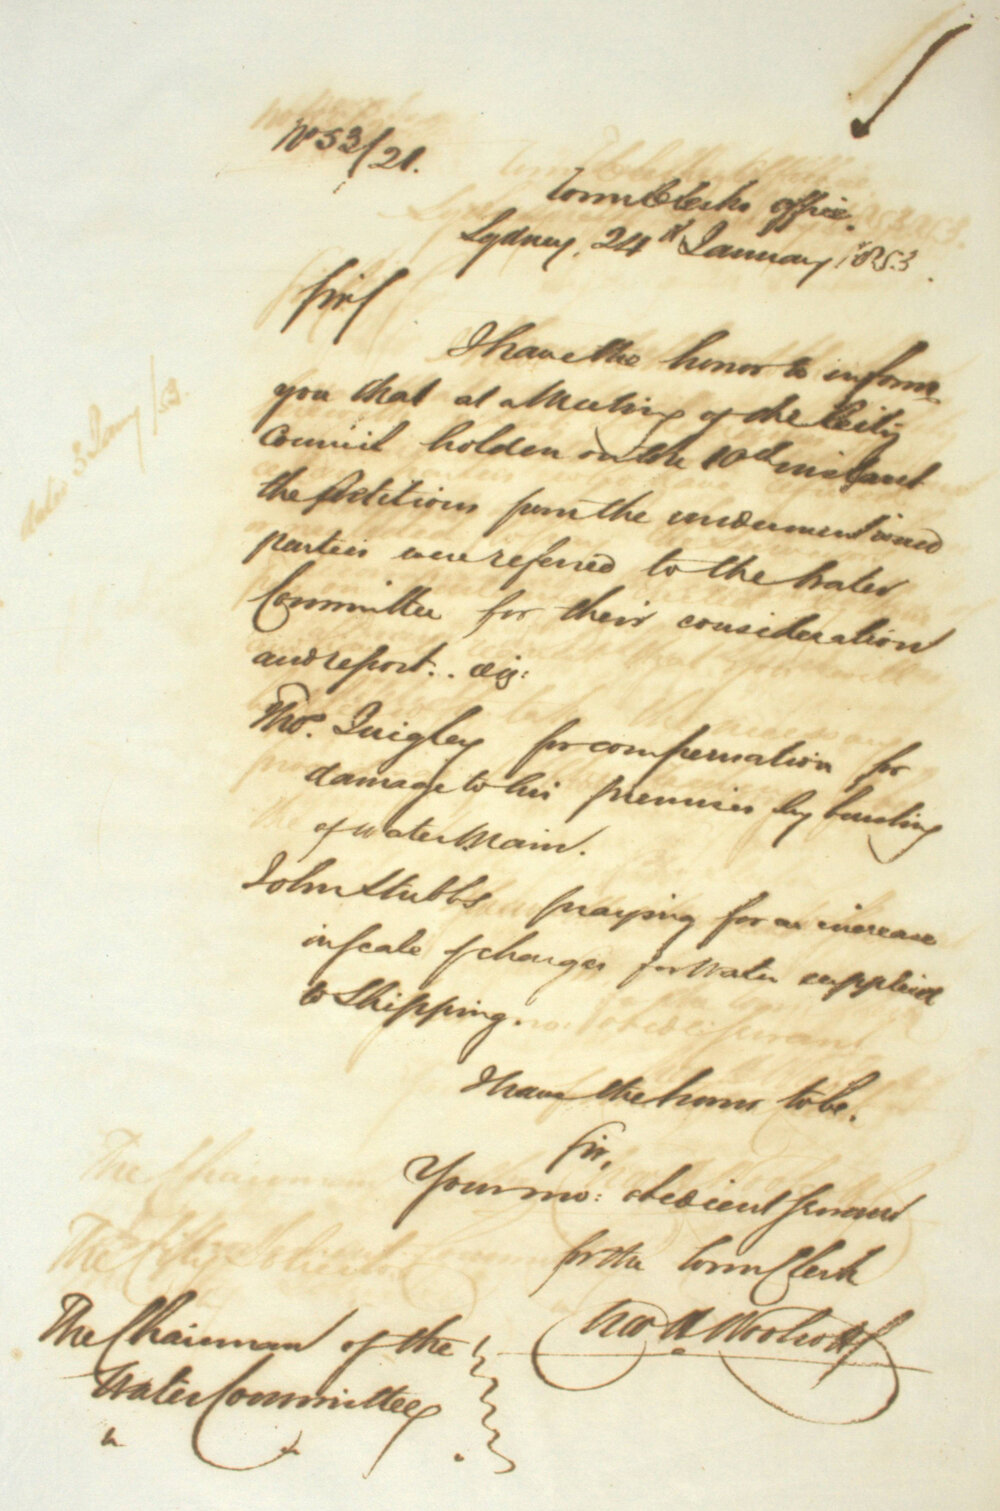 No 53/21.
Town Clerks Office.
Sydney, 24th January, 1853.
Sir/
I have the honor to inform
you that at a Meeting of the City
Council holden on the 10th instant
the Petitions from the undermentioned
parties were referred to the Water
Committee for their consideration
and report.. viz:
Thos. Quigley for compensation for
damage to his premises by bursting
of Water Main.
John Stubbs praying for an increase
in scale of charges for Water supplied
to Shipping.
I have the honor to be.
Sir,
Your mo: obedient Servant
for the Town Clerk
The Chairman of the
Water Committee